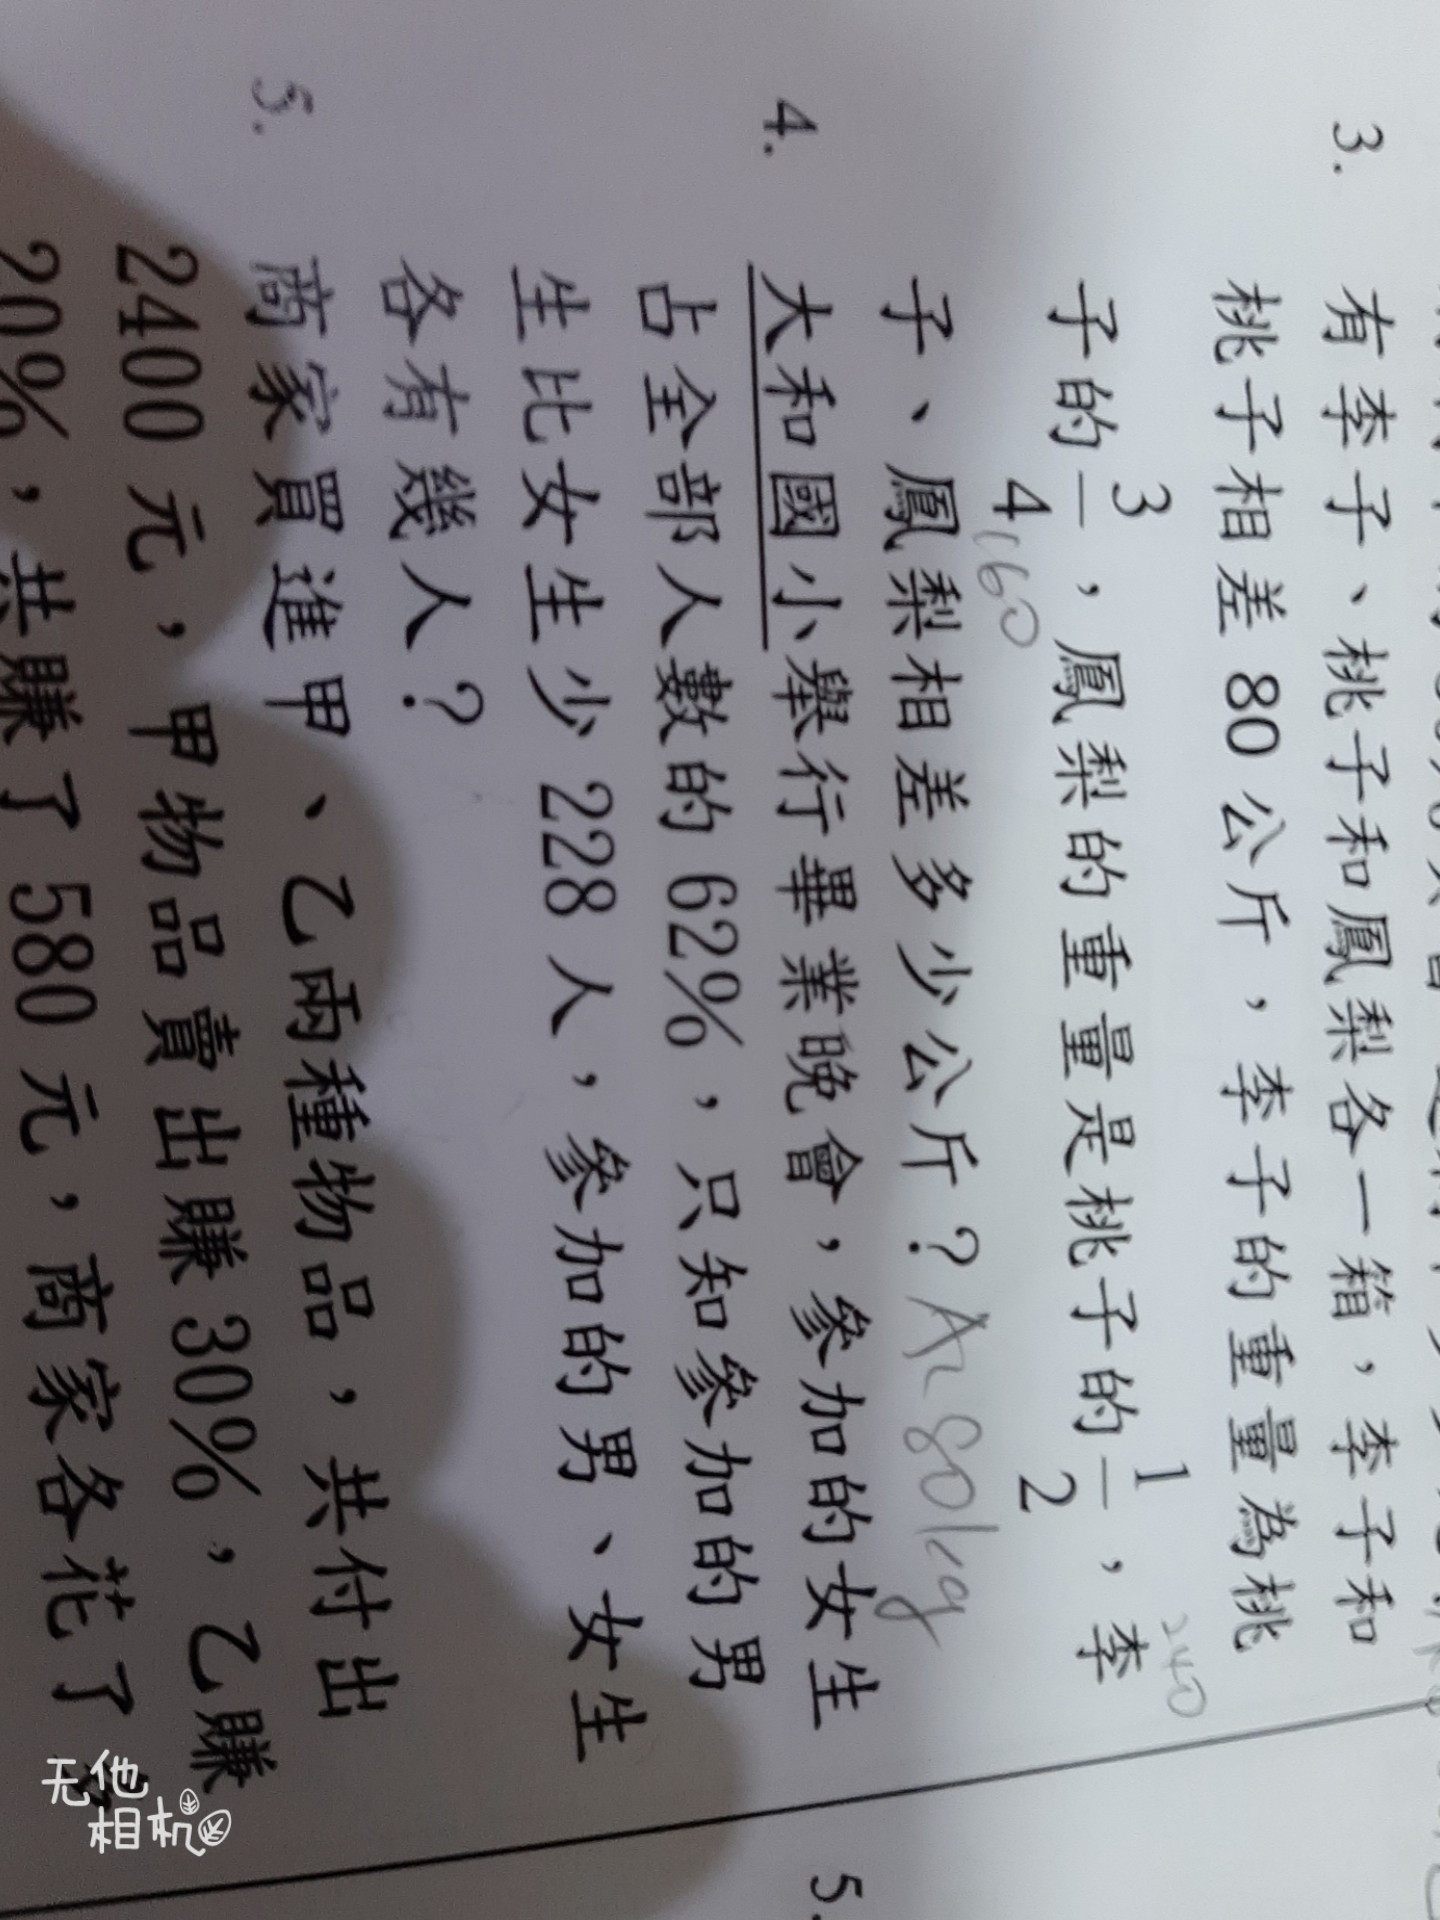 3. 有李子、桃子和鳳梨各一箱，李子和
桃子相差 80 公斤，李子的重量為桃
子的 3/4，鳳梨的重量是桃子的 1/2，李
240
160
子、鳳梨相差多少公斤？A: 80kg
4. 大和國小舉行畢業晚會，參加的女生
占全部人數的 62%，只知參加的男
生比女生少 228 人，參加的男、女生
各有幾人？
5. 商家買進甲、乙兩種物品，共付出
2400 元，甲物品賣出賺 30%，乙賺
20%，共賺了 580 元，商家各花了
5.
无他
相机